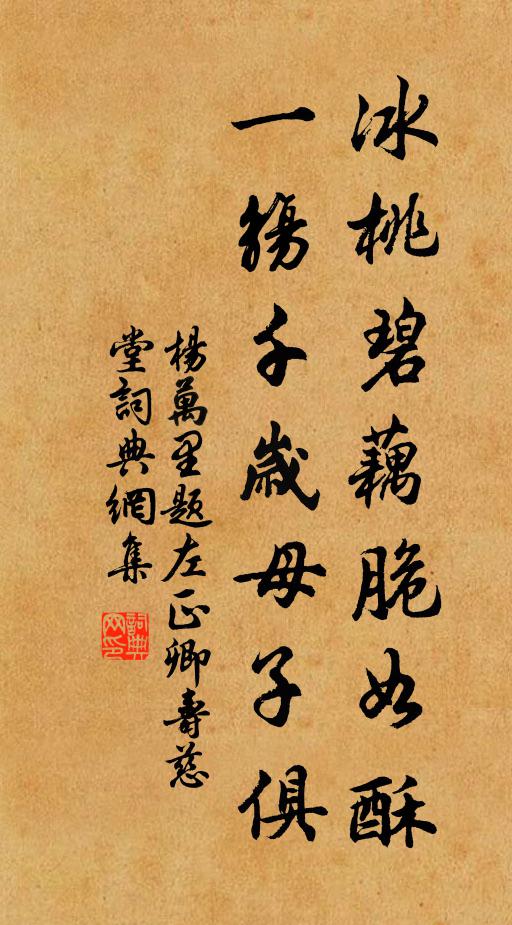 冰桃碧藕脆如酥
一觴千歲母子俱
楊萬里題左正卿壽慈
堂詞典網集
詞典网印